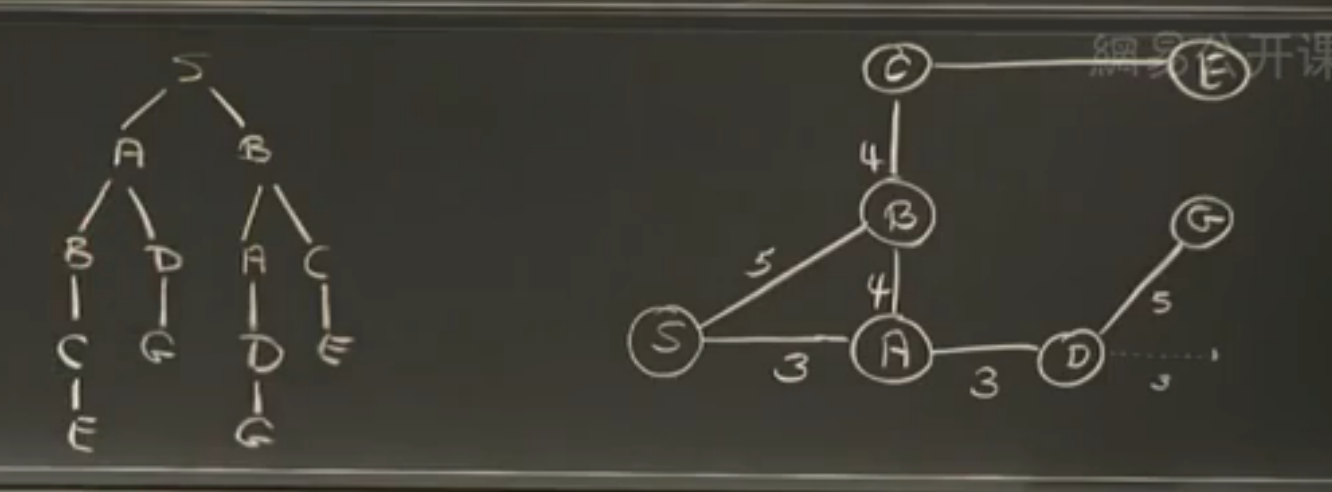 S
A B
B D A C
C G D E
E G
網易公开课
C E
4
B G
5 4 5
S 3 A 3 D 3